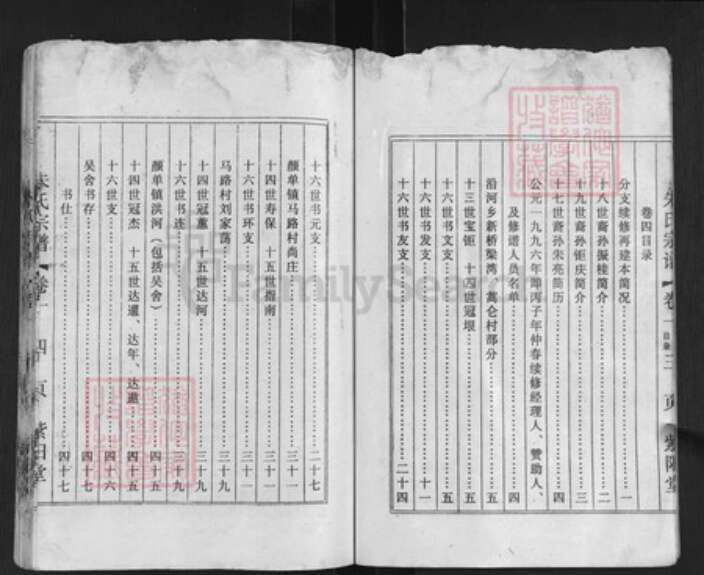 卷四目录
分支续修再建本简况……一
十八世裔孙振桂简介……二
十九世裔孙钜庆简介……三
十七世裔孙朱亮简历……四
公元一九九六年岁丙子年仲春续修经理人、赞助人、
及修谱人员名单……四
沿河乡新桥梁湾 葛仑村部分……五
十三世宝钜 十四世冠堁……五
十六世书文支……五
十六世书发支……十一
十六世书友支……二十四
十六世书元支……二十七
颜单镇马路村尚庄……三十一
十四世寿保 十五世指南……三十一
十六世书环支……三十一
马路村刘家荡……三十九
十四世冠薰 十五世达河……三十九
十六世书连……三十九
颜单镇洪河（包括吴舍）……四十五
十四世冠杰 十五世达暹、达年、达薰……四十五
十六世支……四十六
吴舍书存……四十七
书仕……四十七
朱氏宗谱 卷一 四 页 紫阳堂
FamilySearch